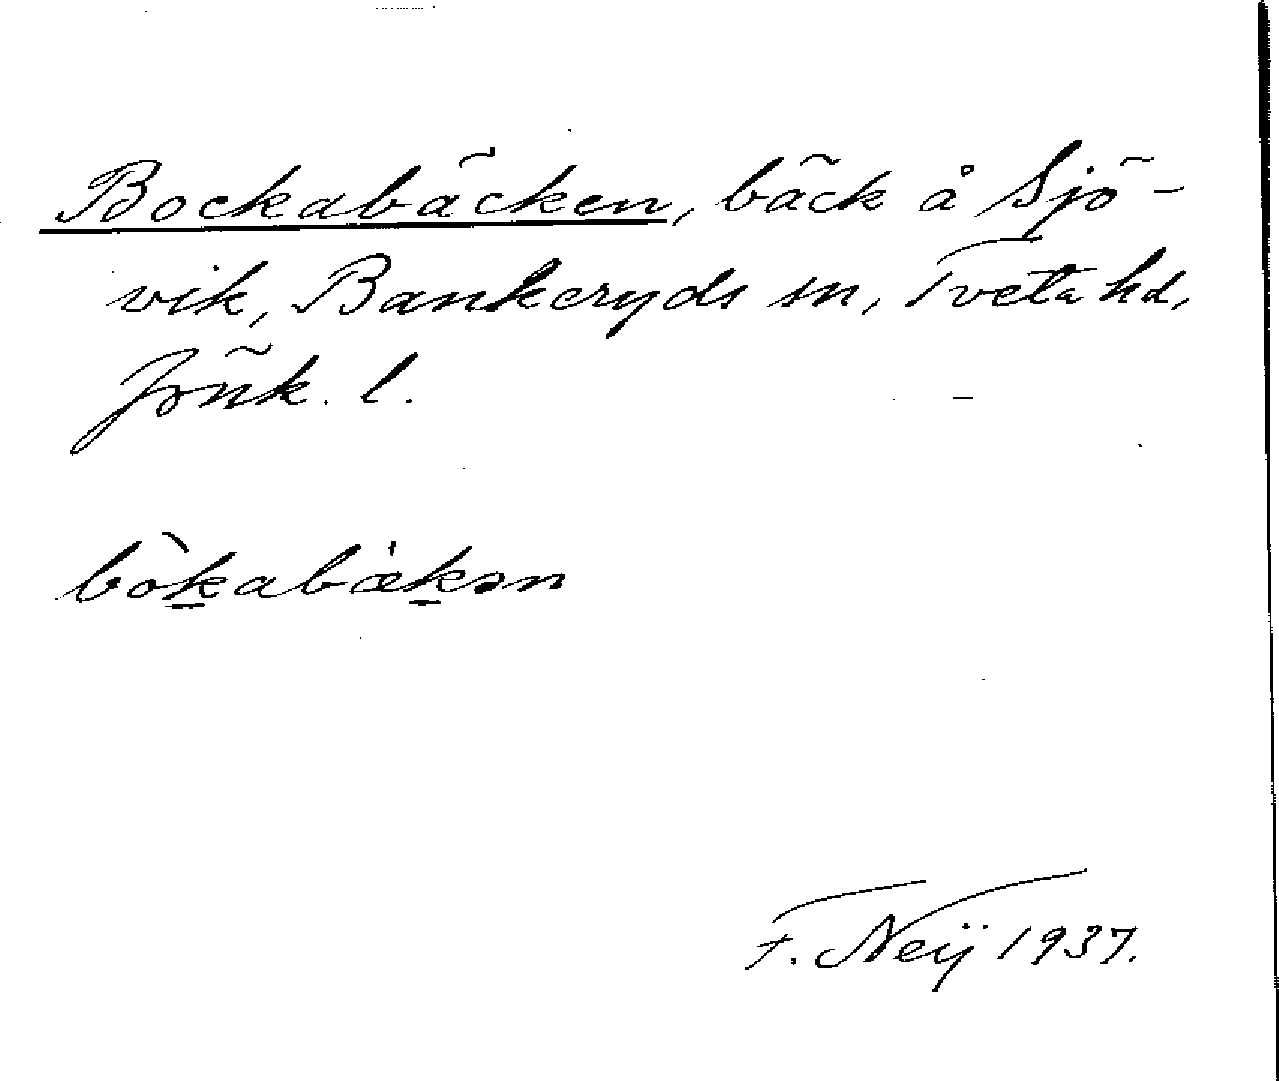 Bockabäcken, bäck å Sjö-
vik, Bankeryds sn, Tveta hd,
Jönk. l.
bòkabækən
F. Neij 1937.